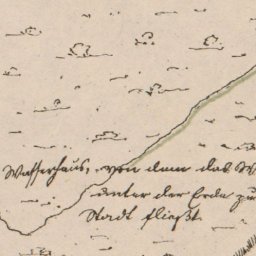 Wasserhaus, von dem das W
unter der Erde zu
Stadt fließt.